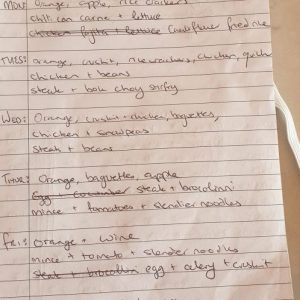 MON: Orange, apple, rice crackers
chilli con carne + lettuce
chicken fajita + lettuce Cauliflower fried rice
TUES: orange, cruskit, rice crackers, chicken, quich
chicken + beans
steak + bok choy stirfry
WED: Orange, cruskit + chicken, baguettes,
chicken + snowpeas
steak + beans
THUR: Orange, baguettes, apple
Egg + cucumber steak + brocolinni
mince + tomatoes + slendier noodles
FRI: orange + wine
mince + tomato + slender noodles
steak + brocolinni egg + celery + cruskit